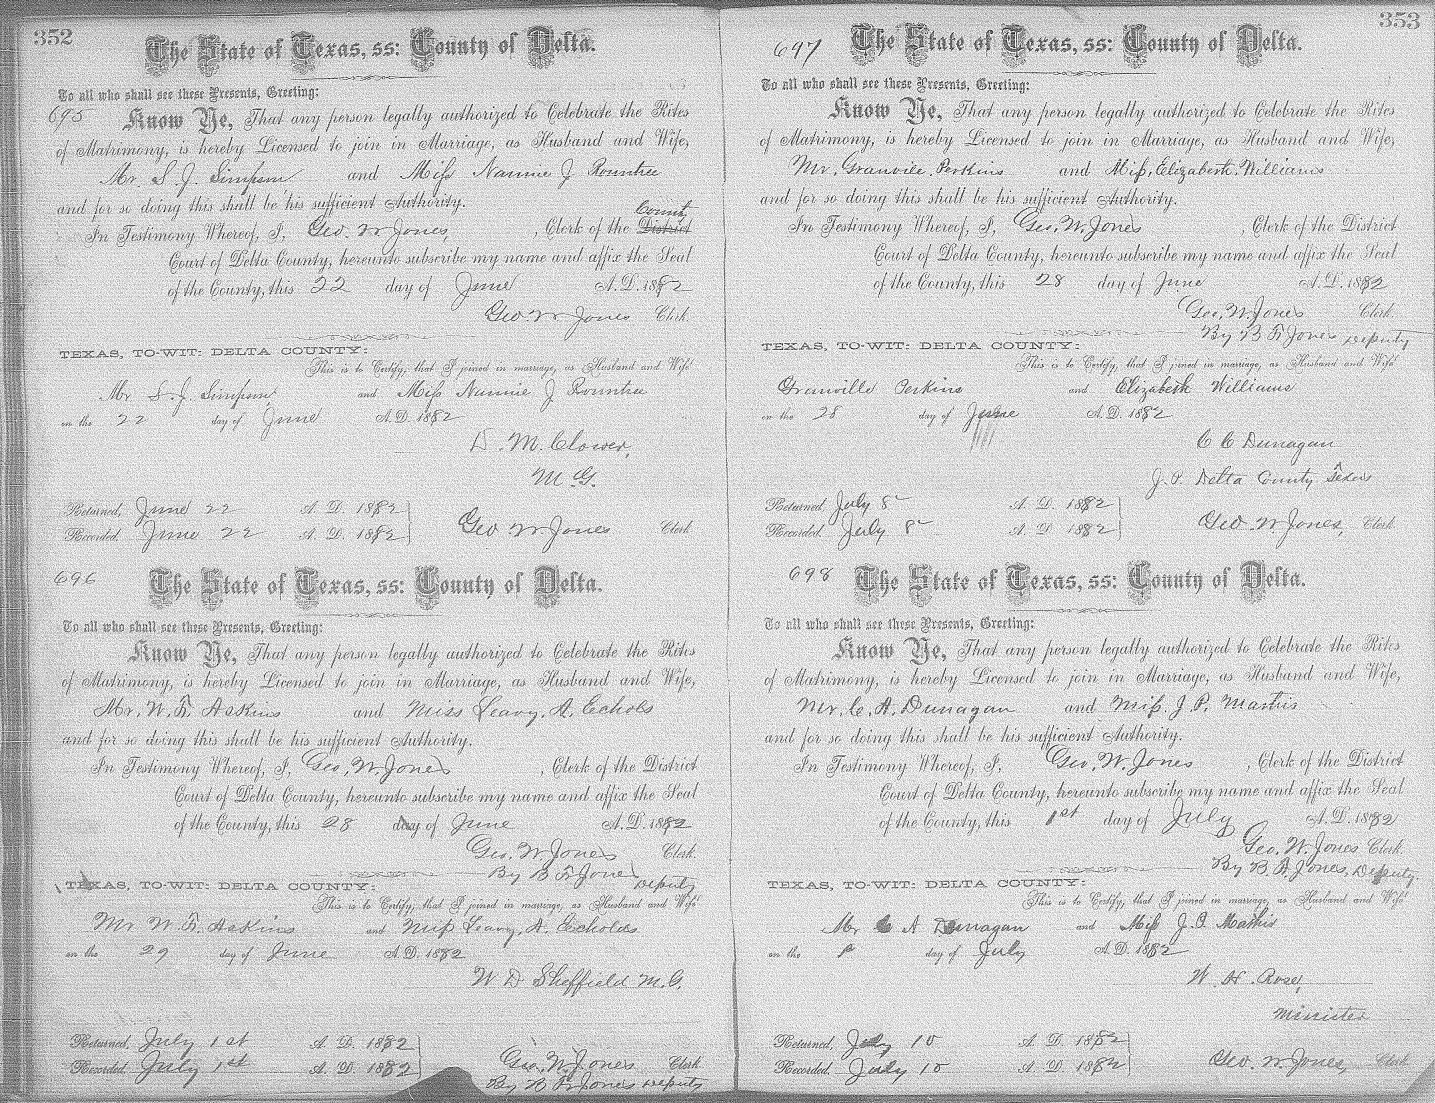 352
The State of Texas, ss: County of Delta.
To all who shall see these Presents, Greeting:
695 Know Ye, That any person legally authorized to Celebrate the Rites
of Matrimony, is hereby Licensed to join in Marriage, as Husband and Wife,
Mr. S. J. Simpson and Miss Nannie J Rountree
and for so doing this shall be his sufficient Authority.
County
In Testimony Whereof, I, Geo. W Jones, , Clerk of the District
Court of Delta County, hereunto subscribe my name and affix the Seal
of the County, this 22 day of June A. D. 1882
Geo. W Jones Clerk.
TEXAS, TO-WIT: DELTA COUNTY:
This is to Certify, that I joined in marriage, as Husband and Wife
Mr. S. J. Simpson and Miss Nannie J Rountree
on the 22 day of June A. D. 1882
D. M. Clower,
M. G.
Returned, June 22 A. D. 1882
Recorded. June 22 A. D. 1882 Geo W Jones Clerk
696 The State of Texas, ss: County of Delta.
To all who shall see these Presents, Greeting:
Know Ye, That any person legally authorized to Celebrate the Rites
of Matrimony, is hereby Licensed to join in Marriage, as Husband and Wife,
Mr. W. F. Askins and Miss Leavy. A. Echols
and for so doing this shall be his sufficient Authority.
In Testimony Whereof, I, Geo. W. Jones , Clerk of the District
Court of Delta County, hereunto subscribe my name and affix the Seal
of the County, this 28 day of June A. D. 1882
Geo. W. Jones Clerk.
By B F Jones Deputy
TEXAS, TO-WIT: DELTA COUNTY:
This is to Certify, that I joined in marriage, as Husband and Wife
Mr W. F. Askins and Miss Leavy, A. Echols
on the 29 day of June A. D. 1882
W D Sheffield M. G.
Returned, July 1st A. D. 1882
Recorded. July 1st A. D. 1882 Geo. W. Jones Clerk
By B F Jones Deputy
353
697 The State of Texas, ss: County of Delta.
To all who shall see these Presents, Greeting:
Know Ye, That any person legally authorized to Celebrate the Rites
of Matrimony, is hereby Licensed to join in Marriage, as Husband and Wife,
Mr. Granvile. Perkins and Miss, Elizabeth. Williams
and for so doing this shall be his sufficient Authority.
In Testimony Whereof, I, Geo. W. Jones , Clerk of the District
Court of Delta County, hereunto subscribe my name and affix the Seal
of the County, this 28 day of June A. D. 1882
Geo. W. Jones Clerk.
By B F Jones Deputy
TEXAS, TO-WIT: DELTA COUNTY:
This is to Certify, that I joined in marriage, as Husband and Wife
Granville Perkins and Elizabeth Williams
on the 28 day of June A. D. 1882
C C Dunagan
J. P. Delta County Texas
Returned, July 8 A. D. 1882
Recorded. July 8 A. D. 1882 Geo. W. Jones, Clerk
698 The State of Texas, ss: County of Delta.
To all who shall see these Presents, Greeting:
Know Ye, That any person legally authorized to Celebrate the Rites
of Matrimony, is hereby Licensed to join in Marriage, as Husband and Wife,
Mr. C. A. Dunagan and Miss. J. P.
and for so doing this shall be his sufficient Authority.
In Testimony Whereof, I, Geo. W. Jones , Clerk of the District
Court of Delta County, hereunto subscribe my name and affix the Seal
of the County, this 1st day of July A. D. 1882
Geo. W. Jones Clerk
By B. F. Jones, Deputy.
TEXAS, TO-WIT: DELTA COUNTY:
This is to Certify, that I joined in marriage, as Husband and Wife
Mr C A Dunagan and Miss J. P.
on the day of July A. D. 1882
W. H. Rose,
Minister
Returned, July 10 A. D. 1882
Recorded. July 10 A. D. 1882 Geo. W. Jones, Clerk